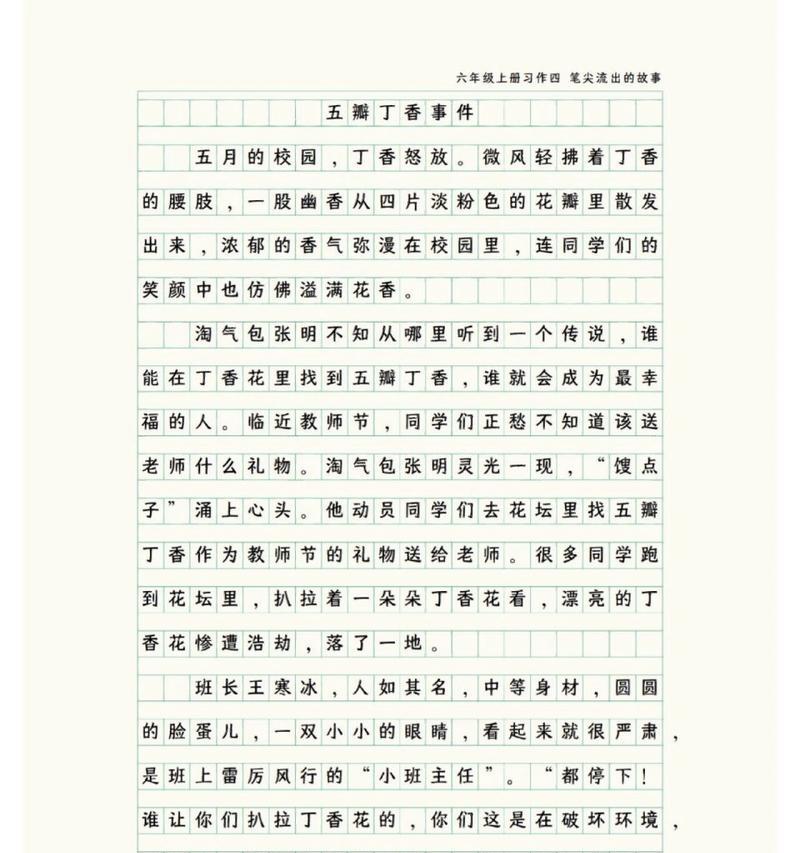 六年级上册习作四 笔尖流出的故事
五瓣丁香事件
五月的校园，丁香怒放。微风轻拂着丁香
的腰肢，一股幽香从四片淡粉色的花瓣里散发
出来，浓郁的香气弥漫在校园里，连同学们的
笑颜中也仿佛溢满花香。
淘气包张明不知从哪里听到一个传说，谁
能在丁香花里找到五瓣丁香，谁就会成为最幸
福的人。临近教师节，同学们正愁不知道该送
老师什么礼物。淘气包张明灵光一现，“馊点
子”涌上心头。他动员同学们去花坛里找五瓣
丁香作为教师节的礼物送给老师。很多同学跑
到花坛里，扒拉着一朵朵丁香花看，漂亮的丁
香花惨遭浩劫，落了一地。
班长王寒冰，人如其名，中等身材，圆圆
的脸蛋儿，一双小小的眼睛，看起来就很严肃，
是班上雷厉风行的“小班主任”。“都停下！
谁让你们扒拉丁香花的，你们这是在破坏环境，